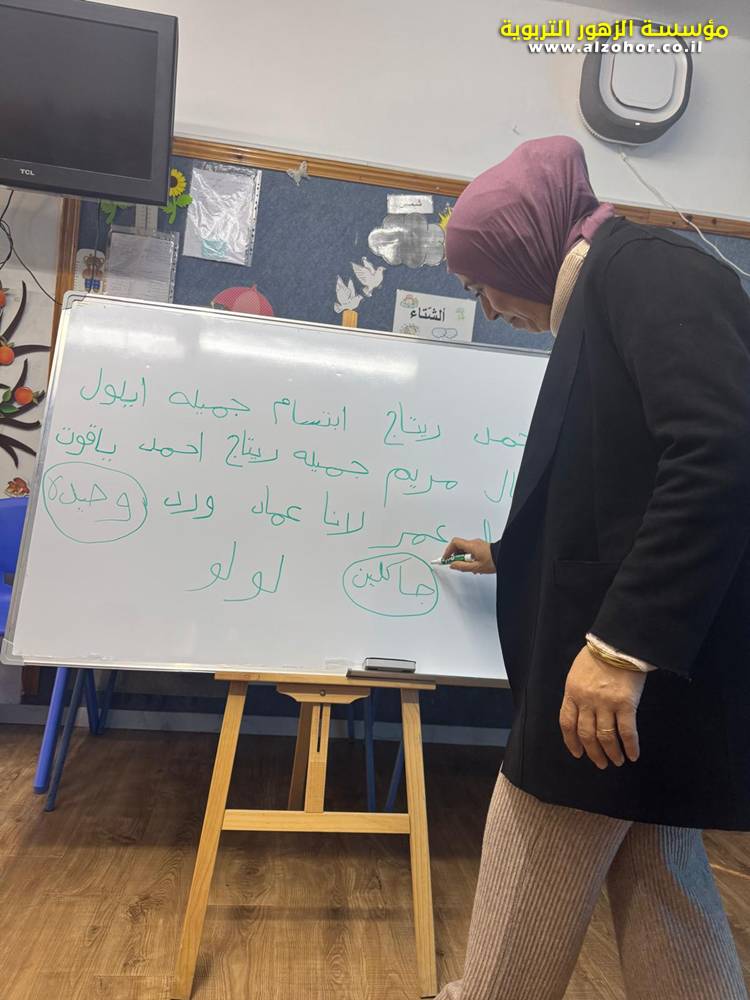 مؤسسة الزهور التربوية
www.alzohor.co.il
TCL
شمس
الشتاء
ريتاج ابتسام جميله ايلول
مريم جميله ريتاج احمد ياقوت
عمر لانا عماد ورد وحيدة
جاكلين لولو